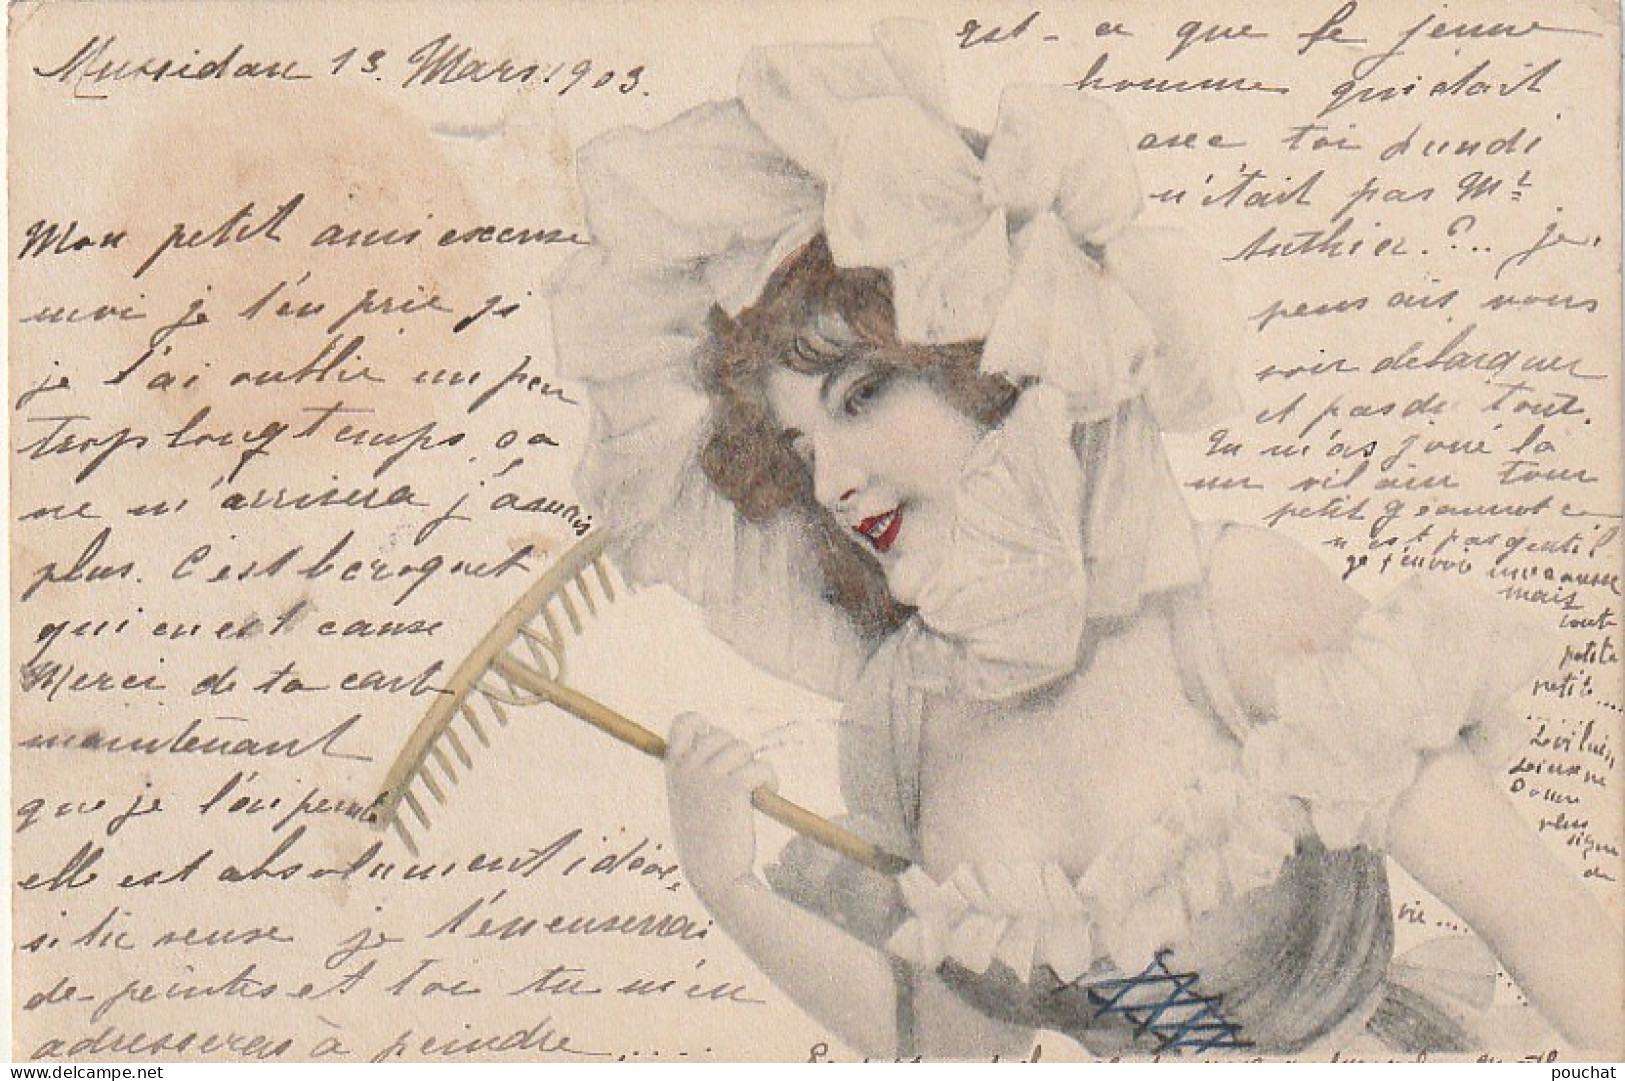 Mussidan 13. Mars. 1903.
Mon petit ami excuse
moi je t'en prie si
je t'ai oublié un peu
trop longtemps, ça
ne m'arrivera j'assuris
plus. C'est le croquet
qui en est cause
Merci de ta carte
maintenant
que je l'ai peinte
elle est absolument idéale,
si tu veux je t'en enverrai
de peintes et toi tu m'en
adresseras à peindre.....
Est-ce que le jeune
homme qui était
avec toi lundi
n'était pas Mr
Authier.?.. je
pensais vous
voir débarquer
et pas du tout.
Tu m'as joué là
un vilain tour
petit Jeannot ce
n'est pas gentil
je t'envoie une caresse
mais
toute
petite
petite....
donne
plus
signe
de
vie....
pouchat